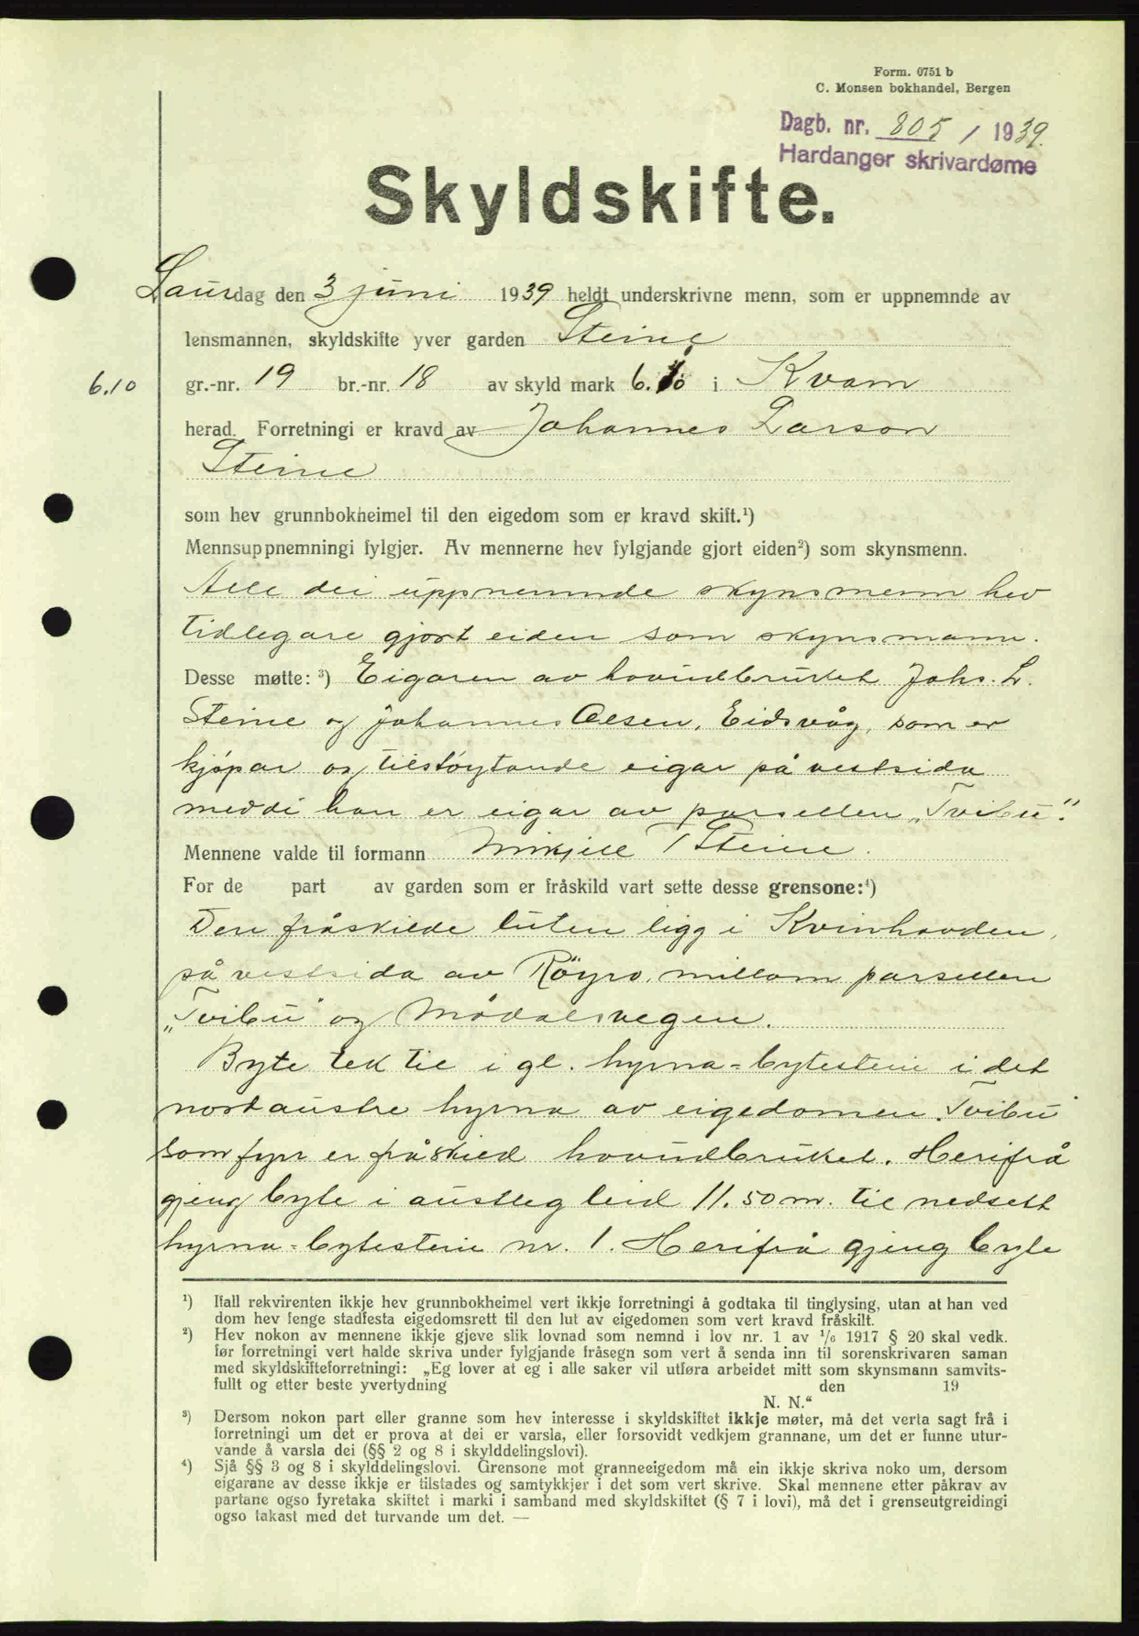 Form. 0751 b
C. Monsen bokhandel, Bergen
Dagb. nr. 805 / 1939.
Hardanger skrivardøme
Skyldskifte.
Laurdag den 3 juni 1939 heldt underskrivne menn, som er uppnemnde av
lensmannen, skyldskifte yver garden Steine
6.10 gr.-nr. 19 br.-nr. 18 av skyld mark 6.10 i Kvam
herad. Forretningi er kravd av Johannes Larson
Steine
som hev grunnbokheimel til den eigedom som er kravd skift.¹)
Mennsuppnemningi fylgjer. Av mennerne hev fylgjande gjort eiden²) som skynsmenn.
Alle dei uppnemnde skynsmenn hev
tidlegare gjort eiden som skynsmann.
Desse møtte: ³) Eigaren av hovudbruket Johs. L.
Steine og Johannes Olsen, Eidsvåg, som er
kjøpar og tilstøytande eigar på vestsida
meddi han er eigar av parsellen „Tvibu“.
Mennene valde til formann Mikjell T Steine.
For de part av garden som er fråskild vart sette desse grensone:⁴)
Den fråskilde luten ligg i Kvinhovden,
på vestsida av Røyro, millom parsellen
„Tvibu“ og Mødalsvegen.
Byte tek til i gl. hyrna-bytestein i det
nordaustre hyrna av eigedomen „Tvibu“
som fyrr er fråskild hovudbruket. Herifrå
gjeng byte i austleg leid 11.50 m. til nedsett
hyrna-bytestein nr. 1. Herifrå gjeng byte
¹) Ifall rekvirenten ikkje hev grunnbokheimel vert ikkje forretningi å godtaka til tinglysing, utan at han ved
dom hev fenge stadfesta eigedomsrett til den lut av eigedomen som vert kravd fråskilt.
²) Hev nokon av mennene ikkje gjeve slik lovnad som nemnd i lov nr. 1 av ¹/₆ 1917 § 20 skal vedk.
før forretningi vert halde skriva under fylgjande fråsegn som vert å senda inn til sorenskrivaren saman
med skyldskifteforretningi: „Eg lover at eg i alle saker vil utføra arbeidet mitt som skynsmann samvits-
fullt og etter beste yvertydning den 19
N. N.“
³) Dersom nokon part eller granne som hev interesse i skyldskiftet ikkje møter, må det verta sagt frå i
forretningi um det er prova at dei er varsla, eller forsovidt vedkjem grannane, um det er funne utur-
vande å varsla dei (§§ 2 og 8 i skylddelingslovi).
⁴) Sjå §§ 3 og 8 i skylddelingslovi. Grensone mot granneeigedom må ein ikkje skriva noko um, dersom
eigarane av desse ikkje er tilstades og samtykkjer i det som vert skrive. Skal mennene etter påkrav av
partane ogso fyretaka skiftet i marki i samband med skyldskiftet (§ 7 i lovi), må det i grenseutgreidingi
ogso takast med det turvande um det. —